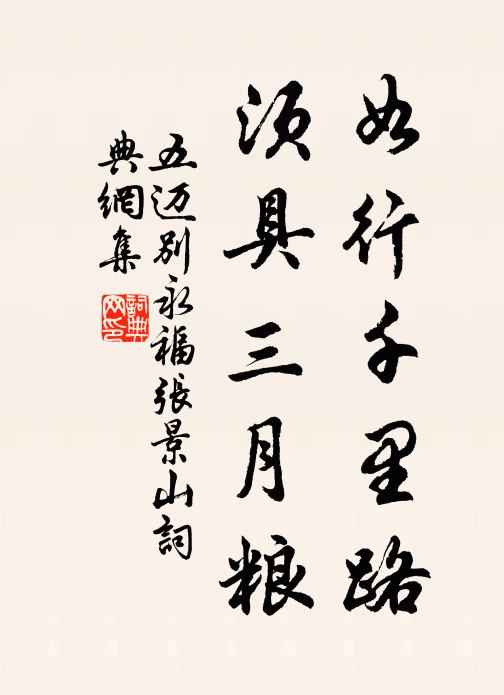 如行千里路
须具三月粮
五迈别永福張景山詞
典網集
詞典网印